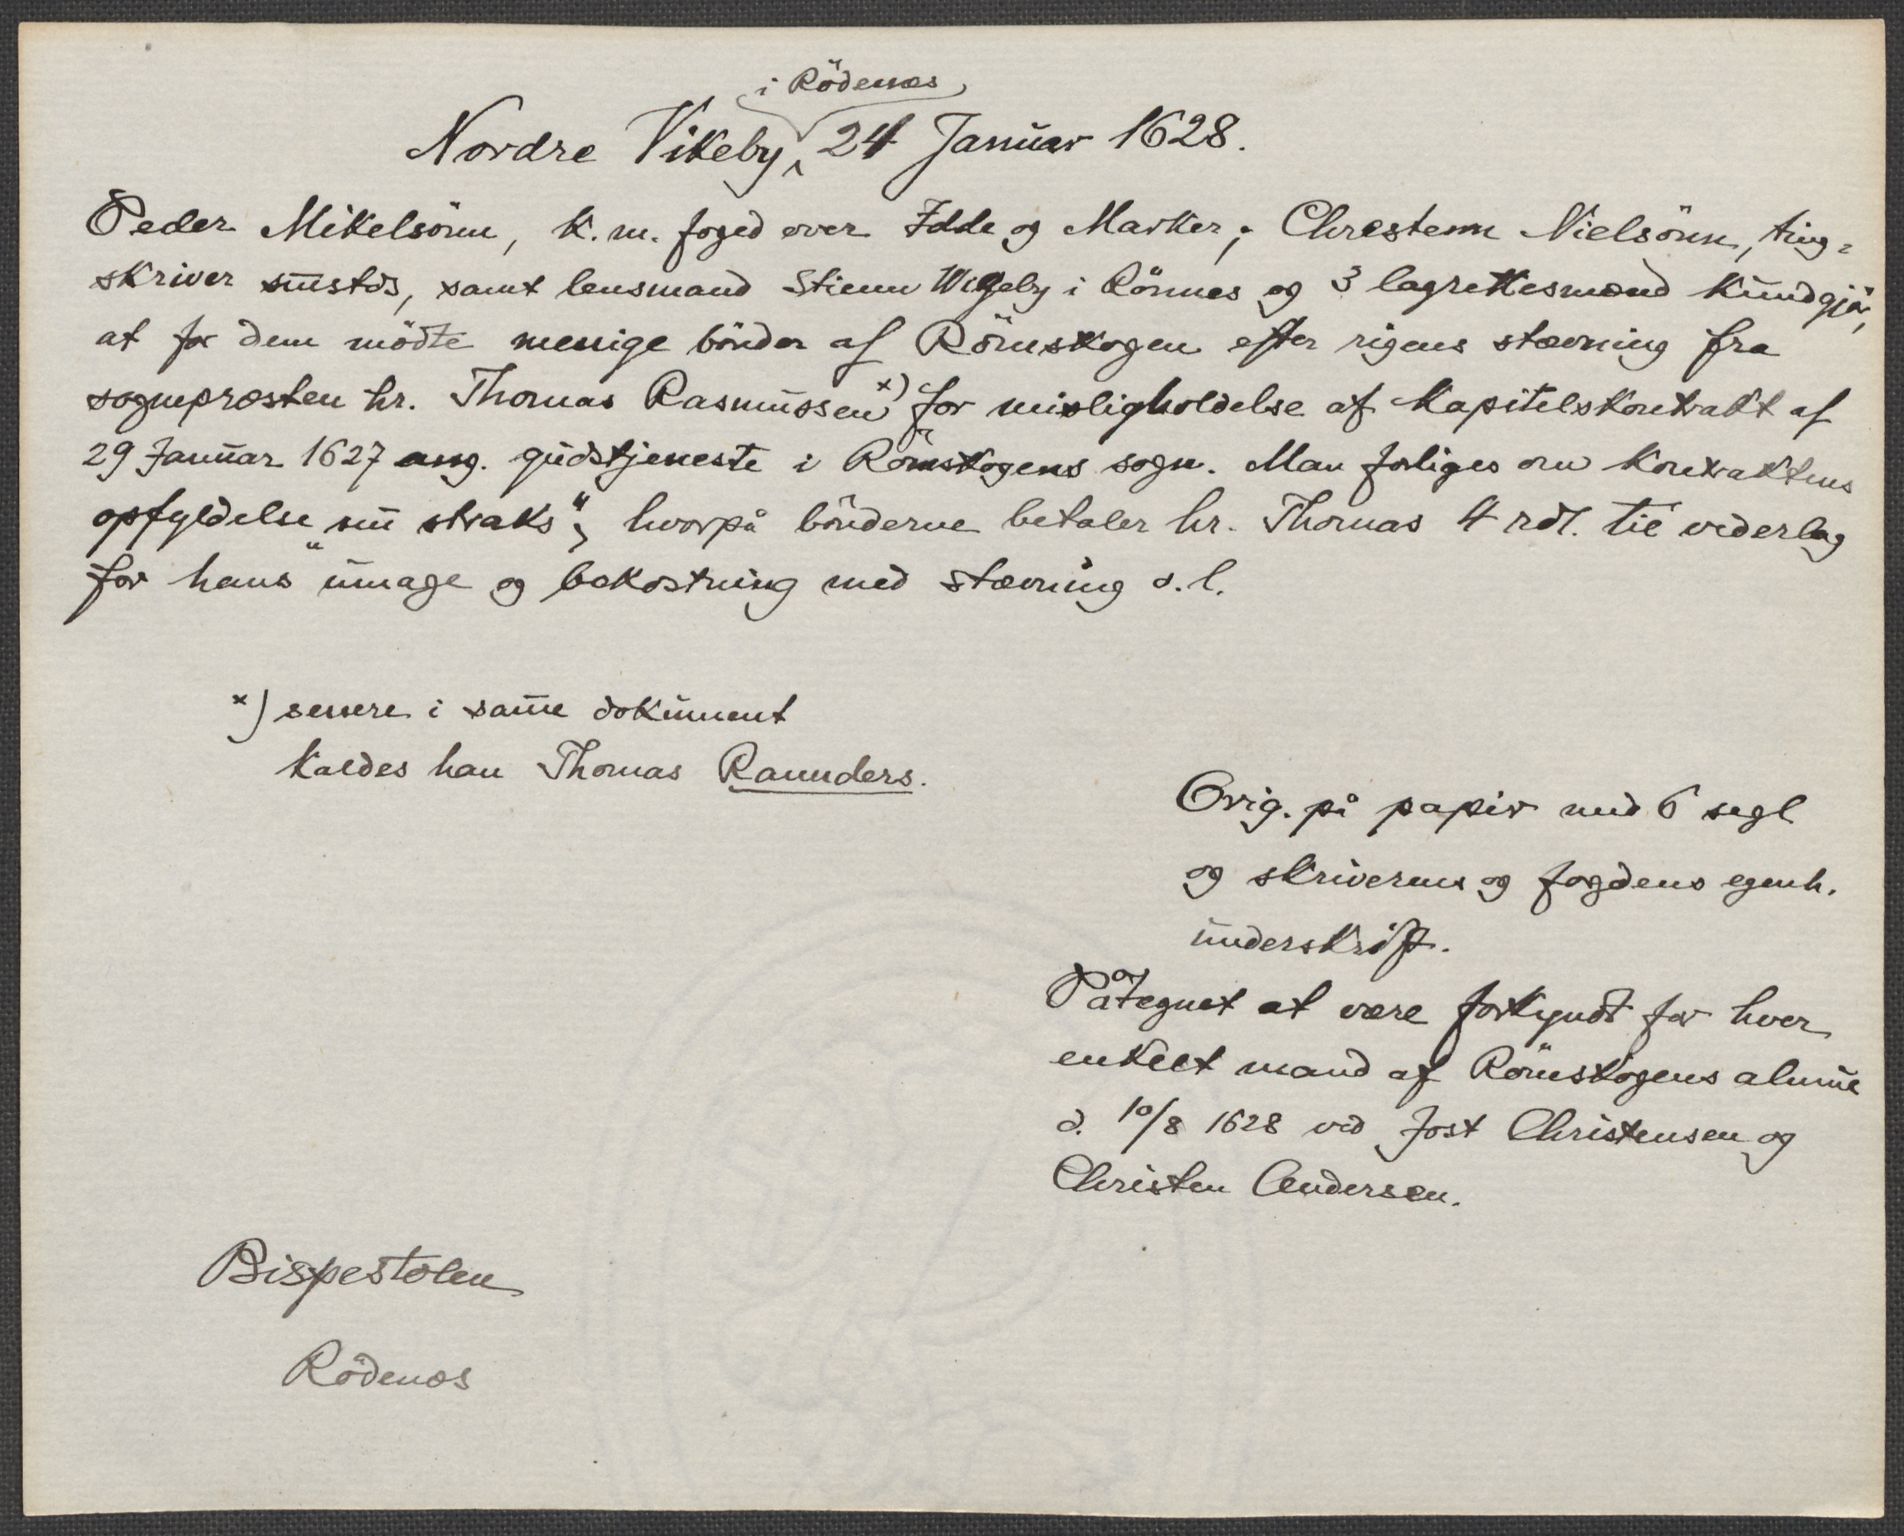 i Rödenæs
Nordre Vikeby, 24 Januar 1628.
Peder Mikelsönn, k. m. foged over Idde og Marker, Chrestenn Nielsönn, ting-
skriver sustds, samt lensmand Stienn Wigeby i Rönnes og 3 lagrettesmænd kundgjör,
at for dem mödte menige bönder af Römskogen efter rigens stævning fra
sognepræsten hr. Thomas Rasmussen x) for misligholdelse af kapitelskontrakt af
29 Januar 1627 ang. gudstjeneste i Römskogens sogn. Man forliges om kontraktens
opfyldelse „nu straks", hvorpå bönderne betaler hr. Thomas 4 rdl. til vederlag
for hans "umage og bekostning med stævning o. l.
x) senere i samme dokument
kaldes han Thomas Raunders.
Orig. på papir med 6 segl
og skriverens og fogdens egenh.
underskrift.
Påtegnet at være forkyndt for hver
enkelt mand af Römskogens almue
d. 10/8 1628 ved Jost Christensen og
Christen Andersen.
Bispestolen
Rödenæs